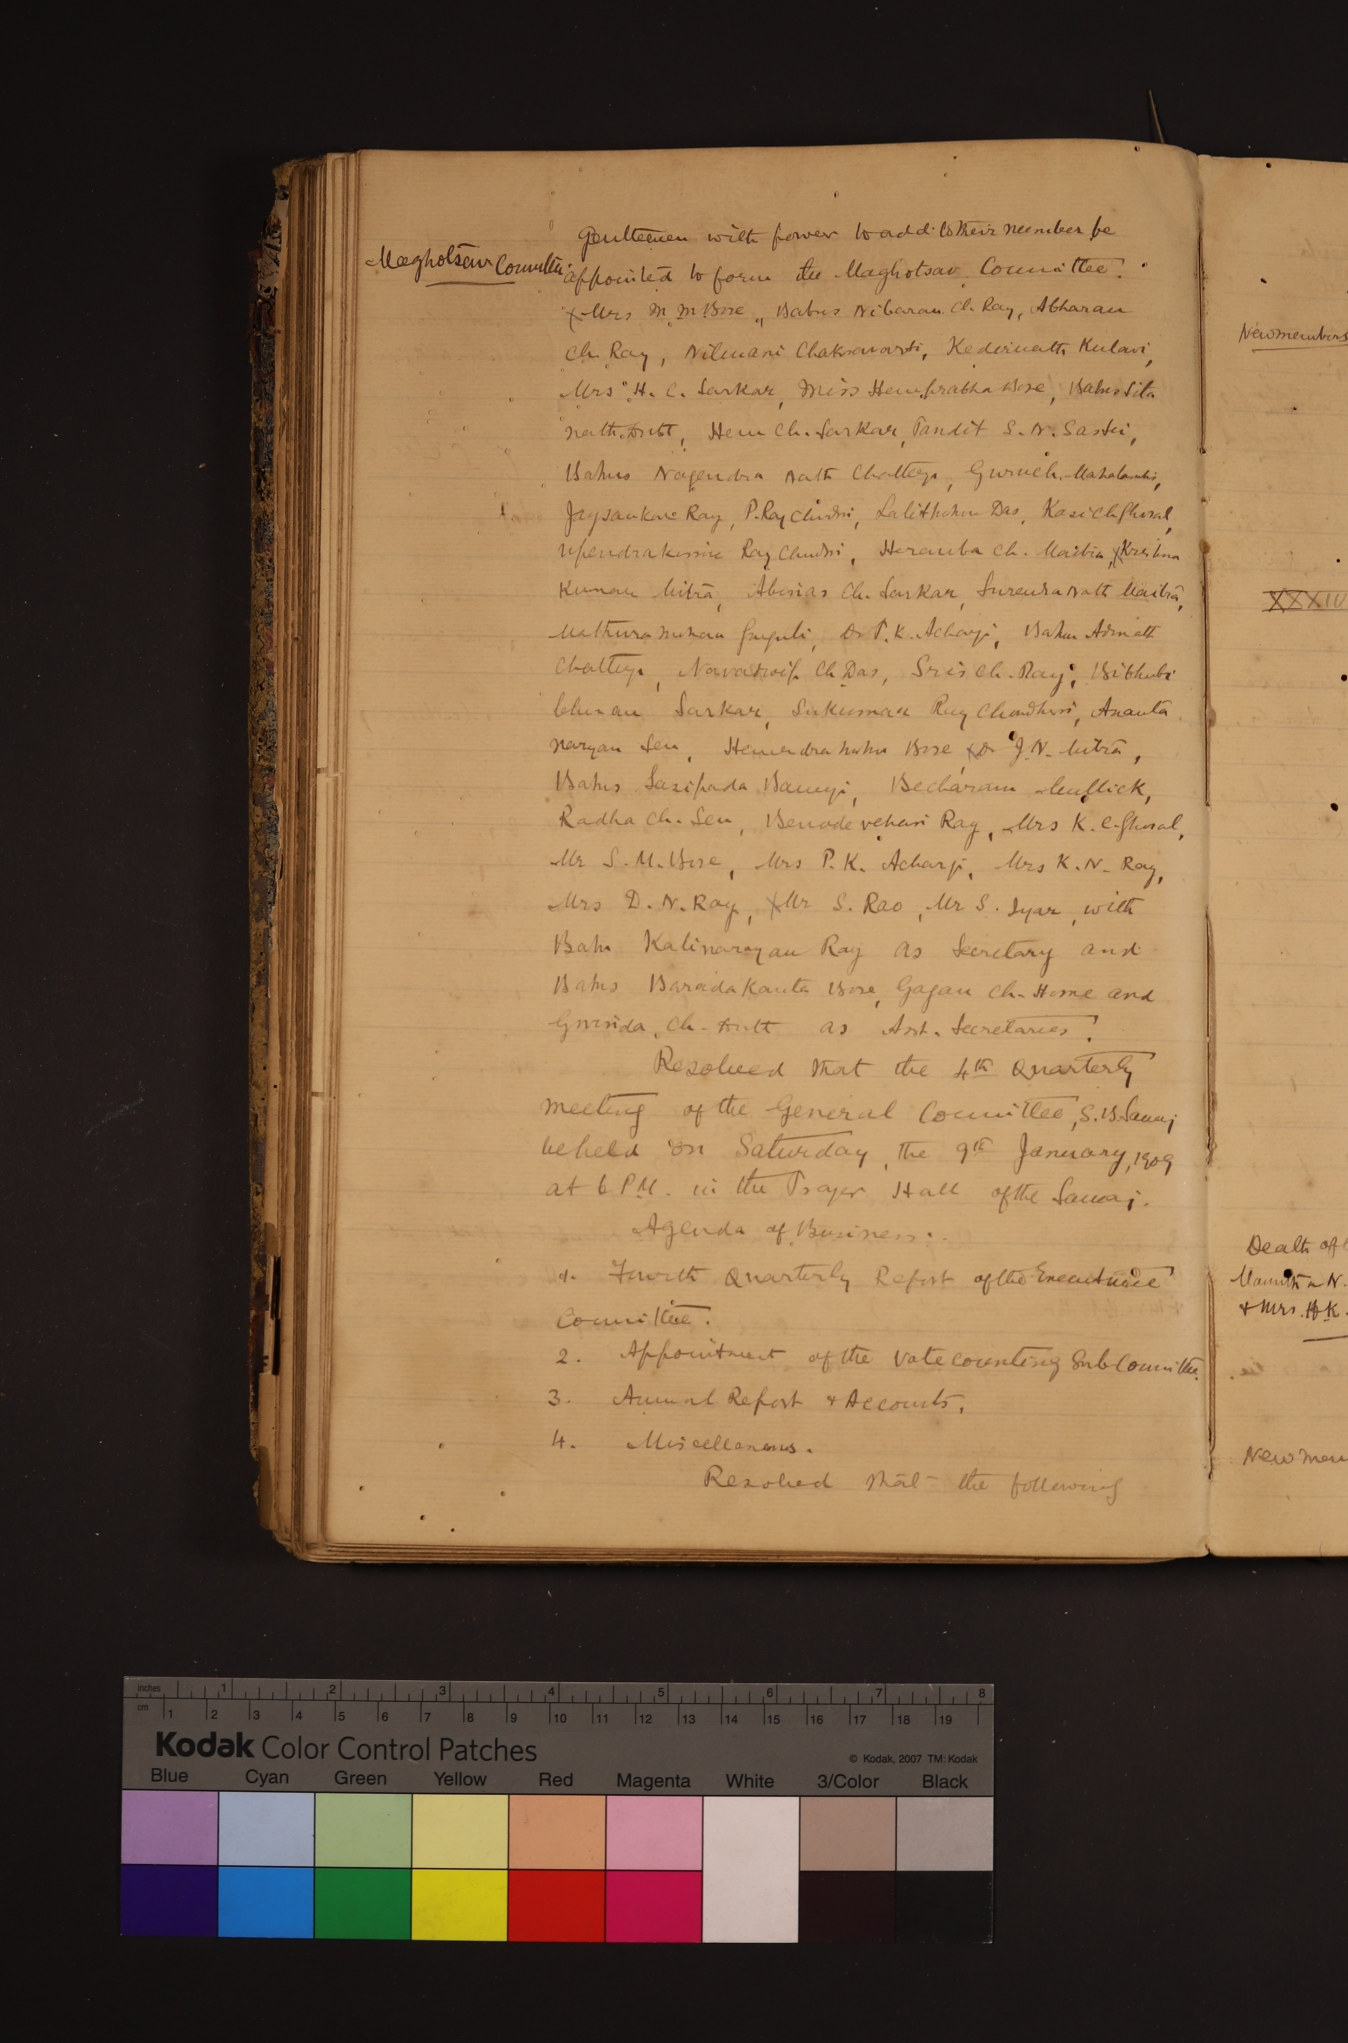 Gentlemen with power to add to their number be
Maghotsav Committee
appointed to form the Maghotsav Committee.
x Mrs M. M. Bose, Babus Nibaran Ch. Ray, Abharan
Ch. Ray, Nilmani Chakravarti, Kedernath Kulavi,
Mrs H. C. Sarkar, Miss Hemprabha Bose, Babus Sita
nath Dutt, Hem Ch. Sarkar, Pandit S. N. Sastri,
Babus Nagendra Nath Chatterji, Guruch. Mahalanabis,
Joysankar Ray, P. Ray Chudri, Lalitmohun Das, Kasi Ch Ghosal,
Upendrakisore Ray Chudri, Heramba Ch. Maitra, x Krishna
Kumar Mitra, Abinas Ch. Sarkar, Surendra Nath Maitra,
Mathuramohan Ganguli, Dr P. K. Acharji, Babu Adinath
Chatterji, Navadwip Ch Das, Sris Ch. Ray, Bibhuti
bhusan Sarkar, Sukumar Ray Chowdhuri, Ananta
narayan Sen, Hemendra Mohun Bose, x Dr J. N. Mitra,
Babus Sasipada Banerji, Becharam Mullick,
Radha Ch. Sen, Benode vehari Ray, Mrs K. C. Ghosal,
Mr S. M. Bose, Mrs P. K. Acharji, Mrs K. N. Ray,
Mrs D. N. Ray, x Mr S. Rao, Mr S. Iyar, with
Babu Kalinarayan Ray as Secretary and
Babus Barada Kanta Bose, Gagan Ch. Home and
Govinda Ch. Dutt as Asst. Secretaries.
Resolved that the 4th Quarterly
meeting of the General Committee, S. B. Samaj
be held on Saturday, the 9th January, 1909
at 6 P.M. in the Prayer Hall of the Samaj.
Agenda of Business.
1. Fourth Quarterly Report of the Executive
Committee.
2. Appointment of the Vote counting Sub Committee.
3. Annual Report & Accounts.
4. Miscellaneous.
Resolved that the following
New members
XXXIV
Death of
N.
& Mrs. H K.
New mem
inches 1 2 3 4 5 6 7 8
cm 1 2 3 4 5 6 7 8 9 10 11 12 13 14 15 16 17 18 19
Kodak Color Control Patches
© Kodak, 2007 TM: Kodak
Blue Cyan Green Yellow Red Magenta White 3/Color Black